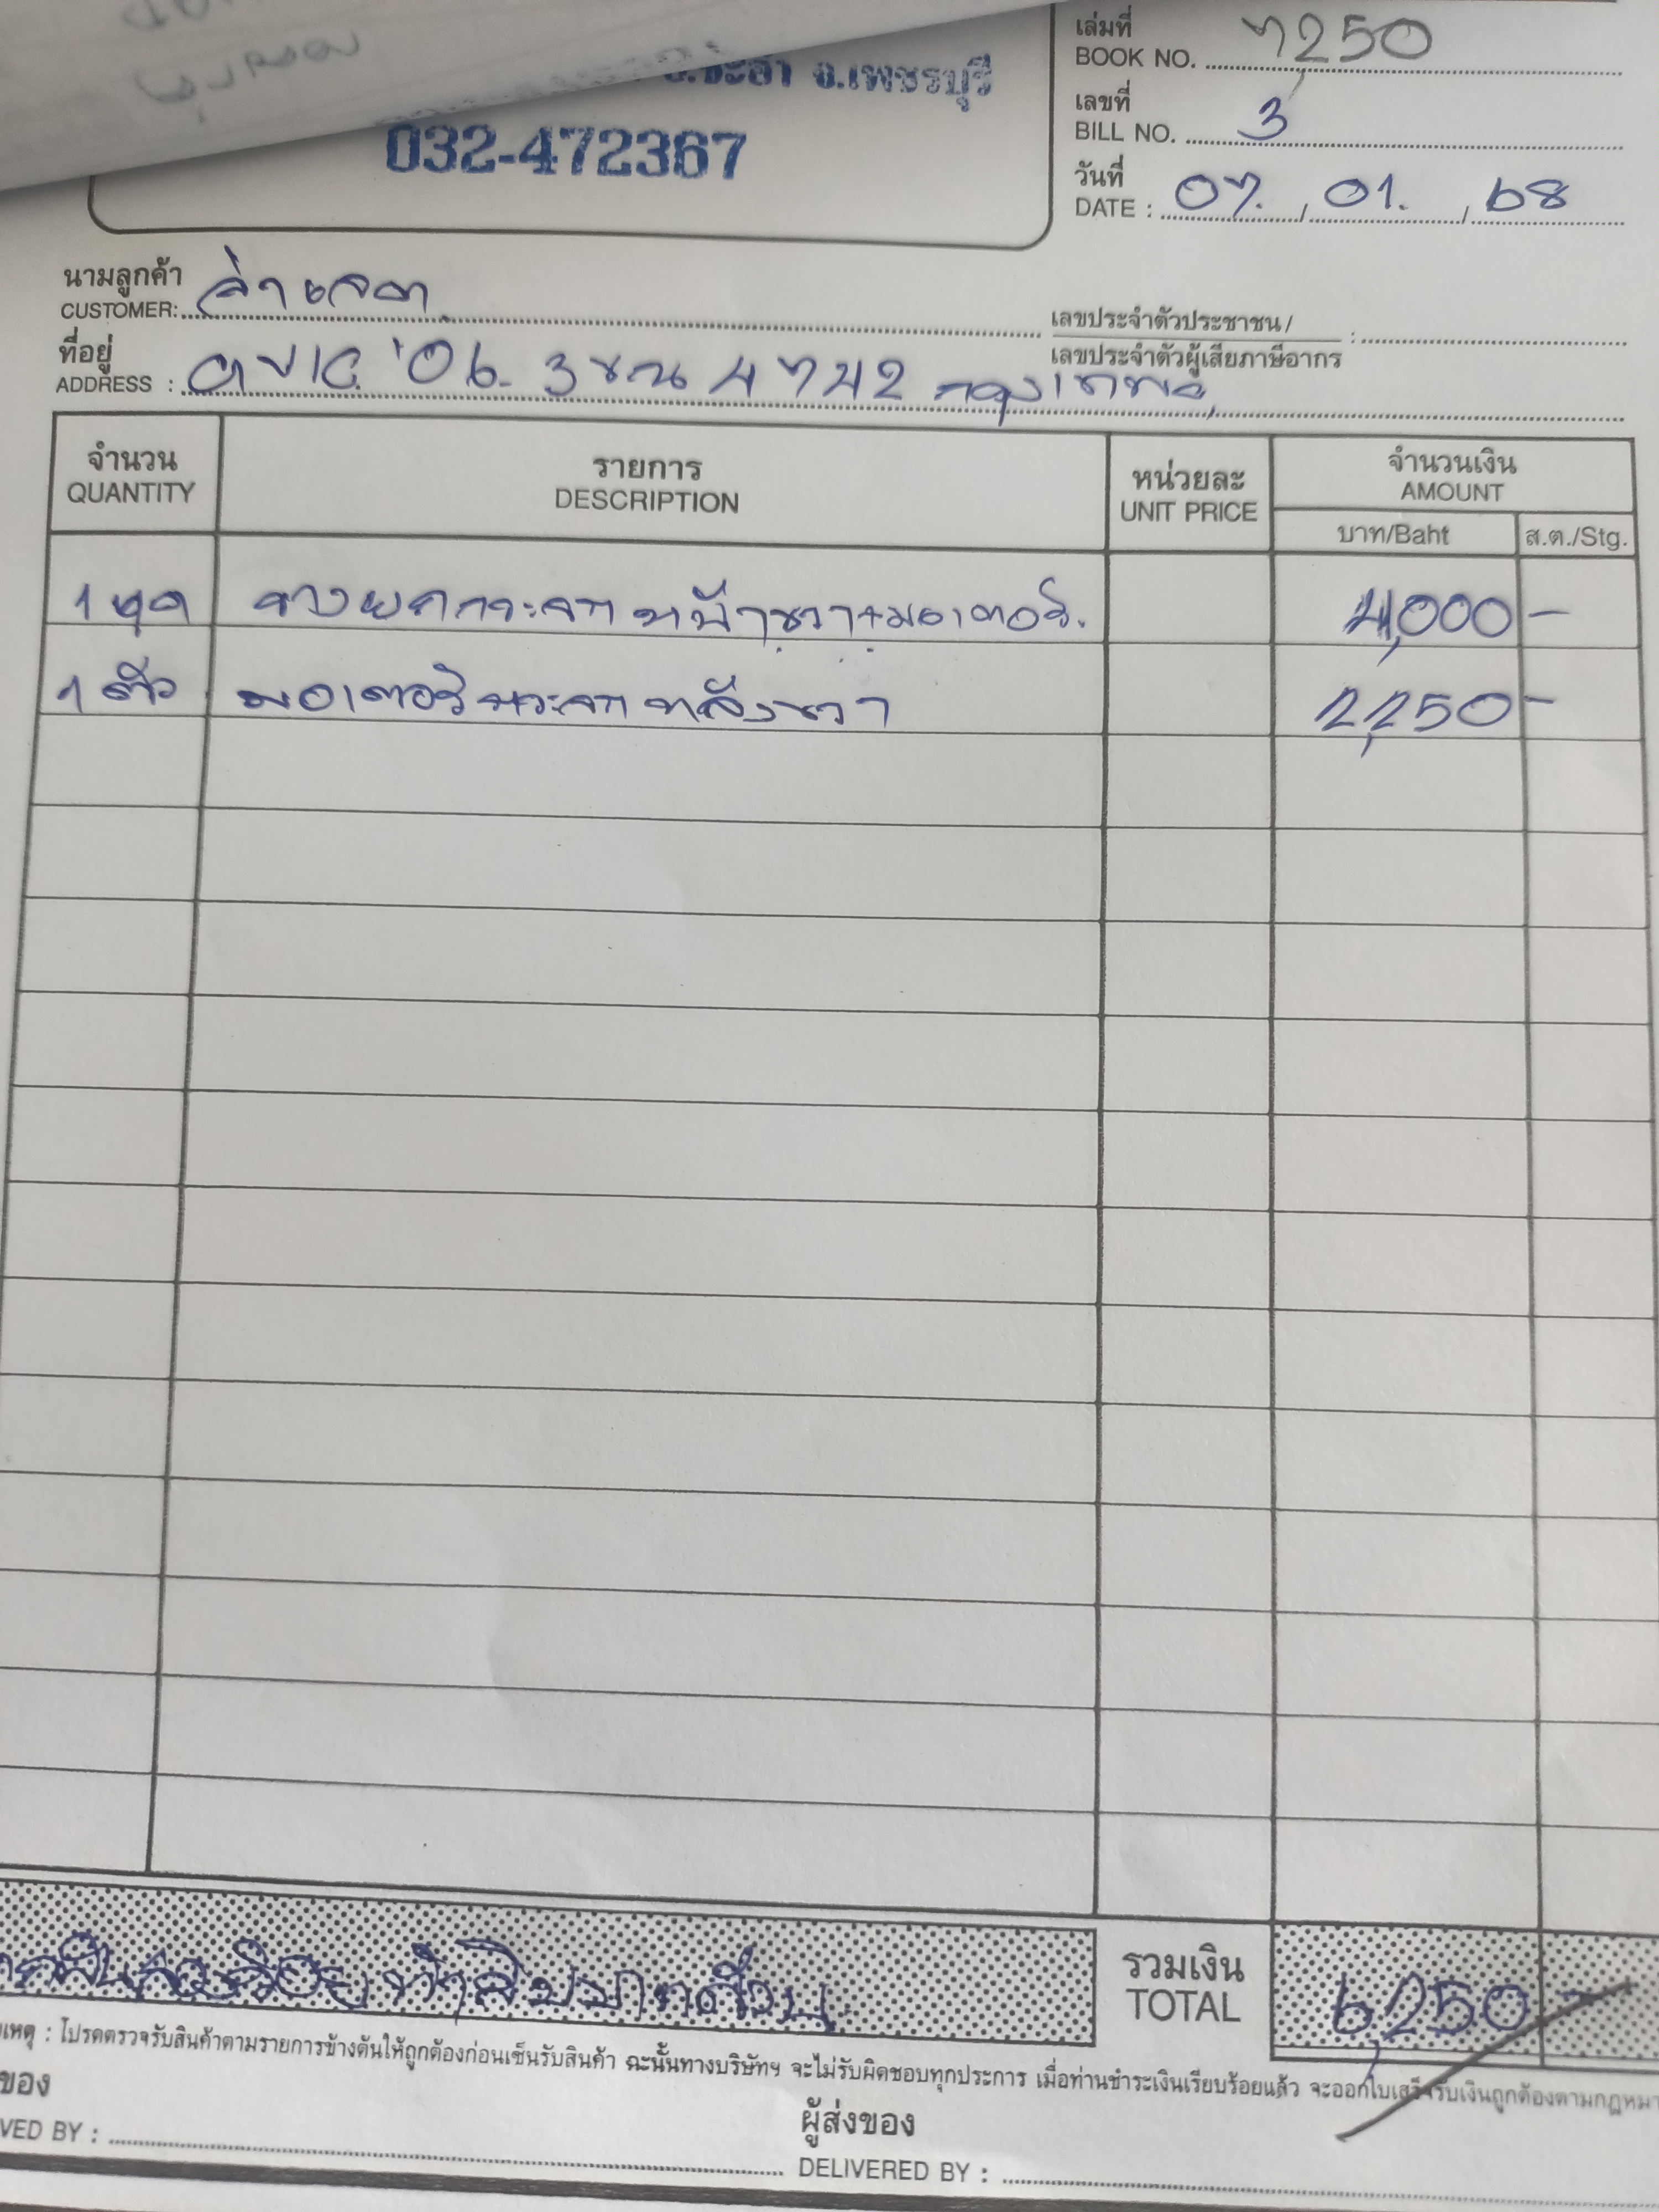 เล่มที่
BOOK NO. 7,250
อ.ชะอำ จ.เพชรบุรี
เลขที่
BILL NO. 3
032-472367
วันที่
DATE : 07. / 01. / 68
นามลูกค้า
CUSTOMER:
เลขประจำตัวประชาชน/ :
เลขประจำตัวผู้เสียภาษีอากร
ที่อยู่
ADDRESS : '06. 3ขณ 4742 กรุงเทพฯ
จำนวน รายการ หน่วยละ จำนวนเงิน
QUANTITY DESCRIPTION UNIT PRICE AMOUNT
บาท/Baht ส.ต./Stg.
1 ชุด รางยกกระจก หน้าขวา+มอเตอร์. 4,000 -
1 ตัว มอเตอร์กระจก หลังขวา 2,250 -
รวมเงิน
TOTAL 6,250 -
เหตุ : โปรดตรวจรับสินค้าตามรายการข้างต้นให้ถูกต้องก่อนเซ็นรับสินค้า ฉะนั้นทางบริษัทฯ จะไม่รับผิดชอบทุกประการ เมื่อท่านชำระเงินเรียบร้อยแล้ว จะออกใบเสร็จรับเงินถูกต้องตามกฎหมา
ของ
VED BY :
ผู้ส่งของ
DELIVERED BY :